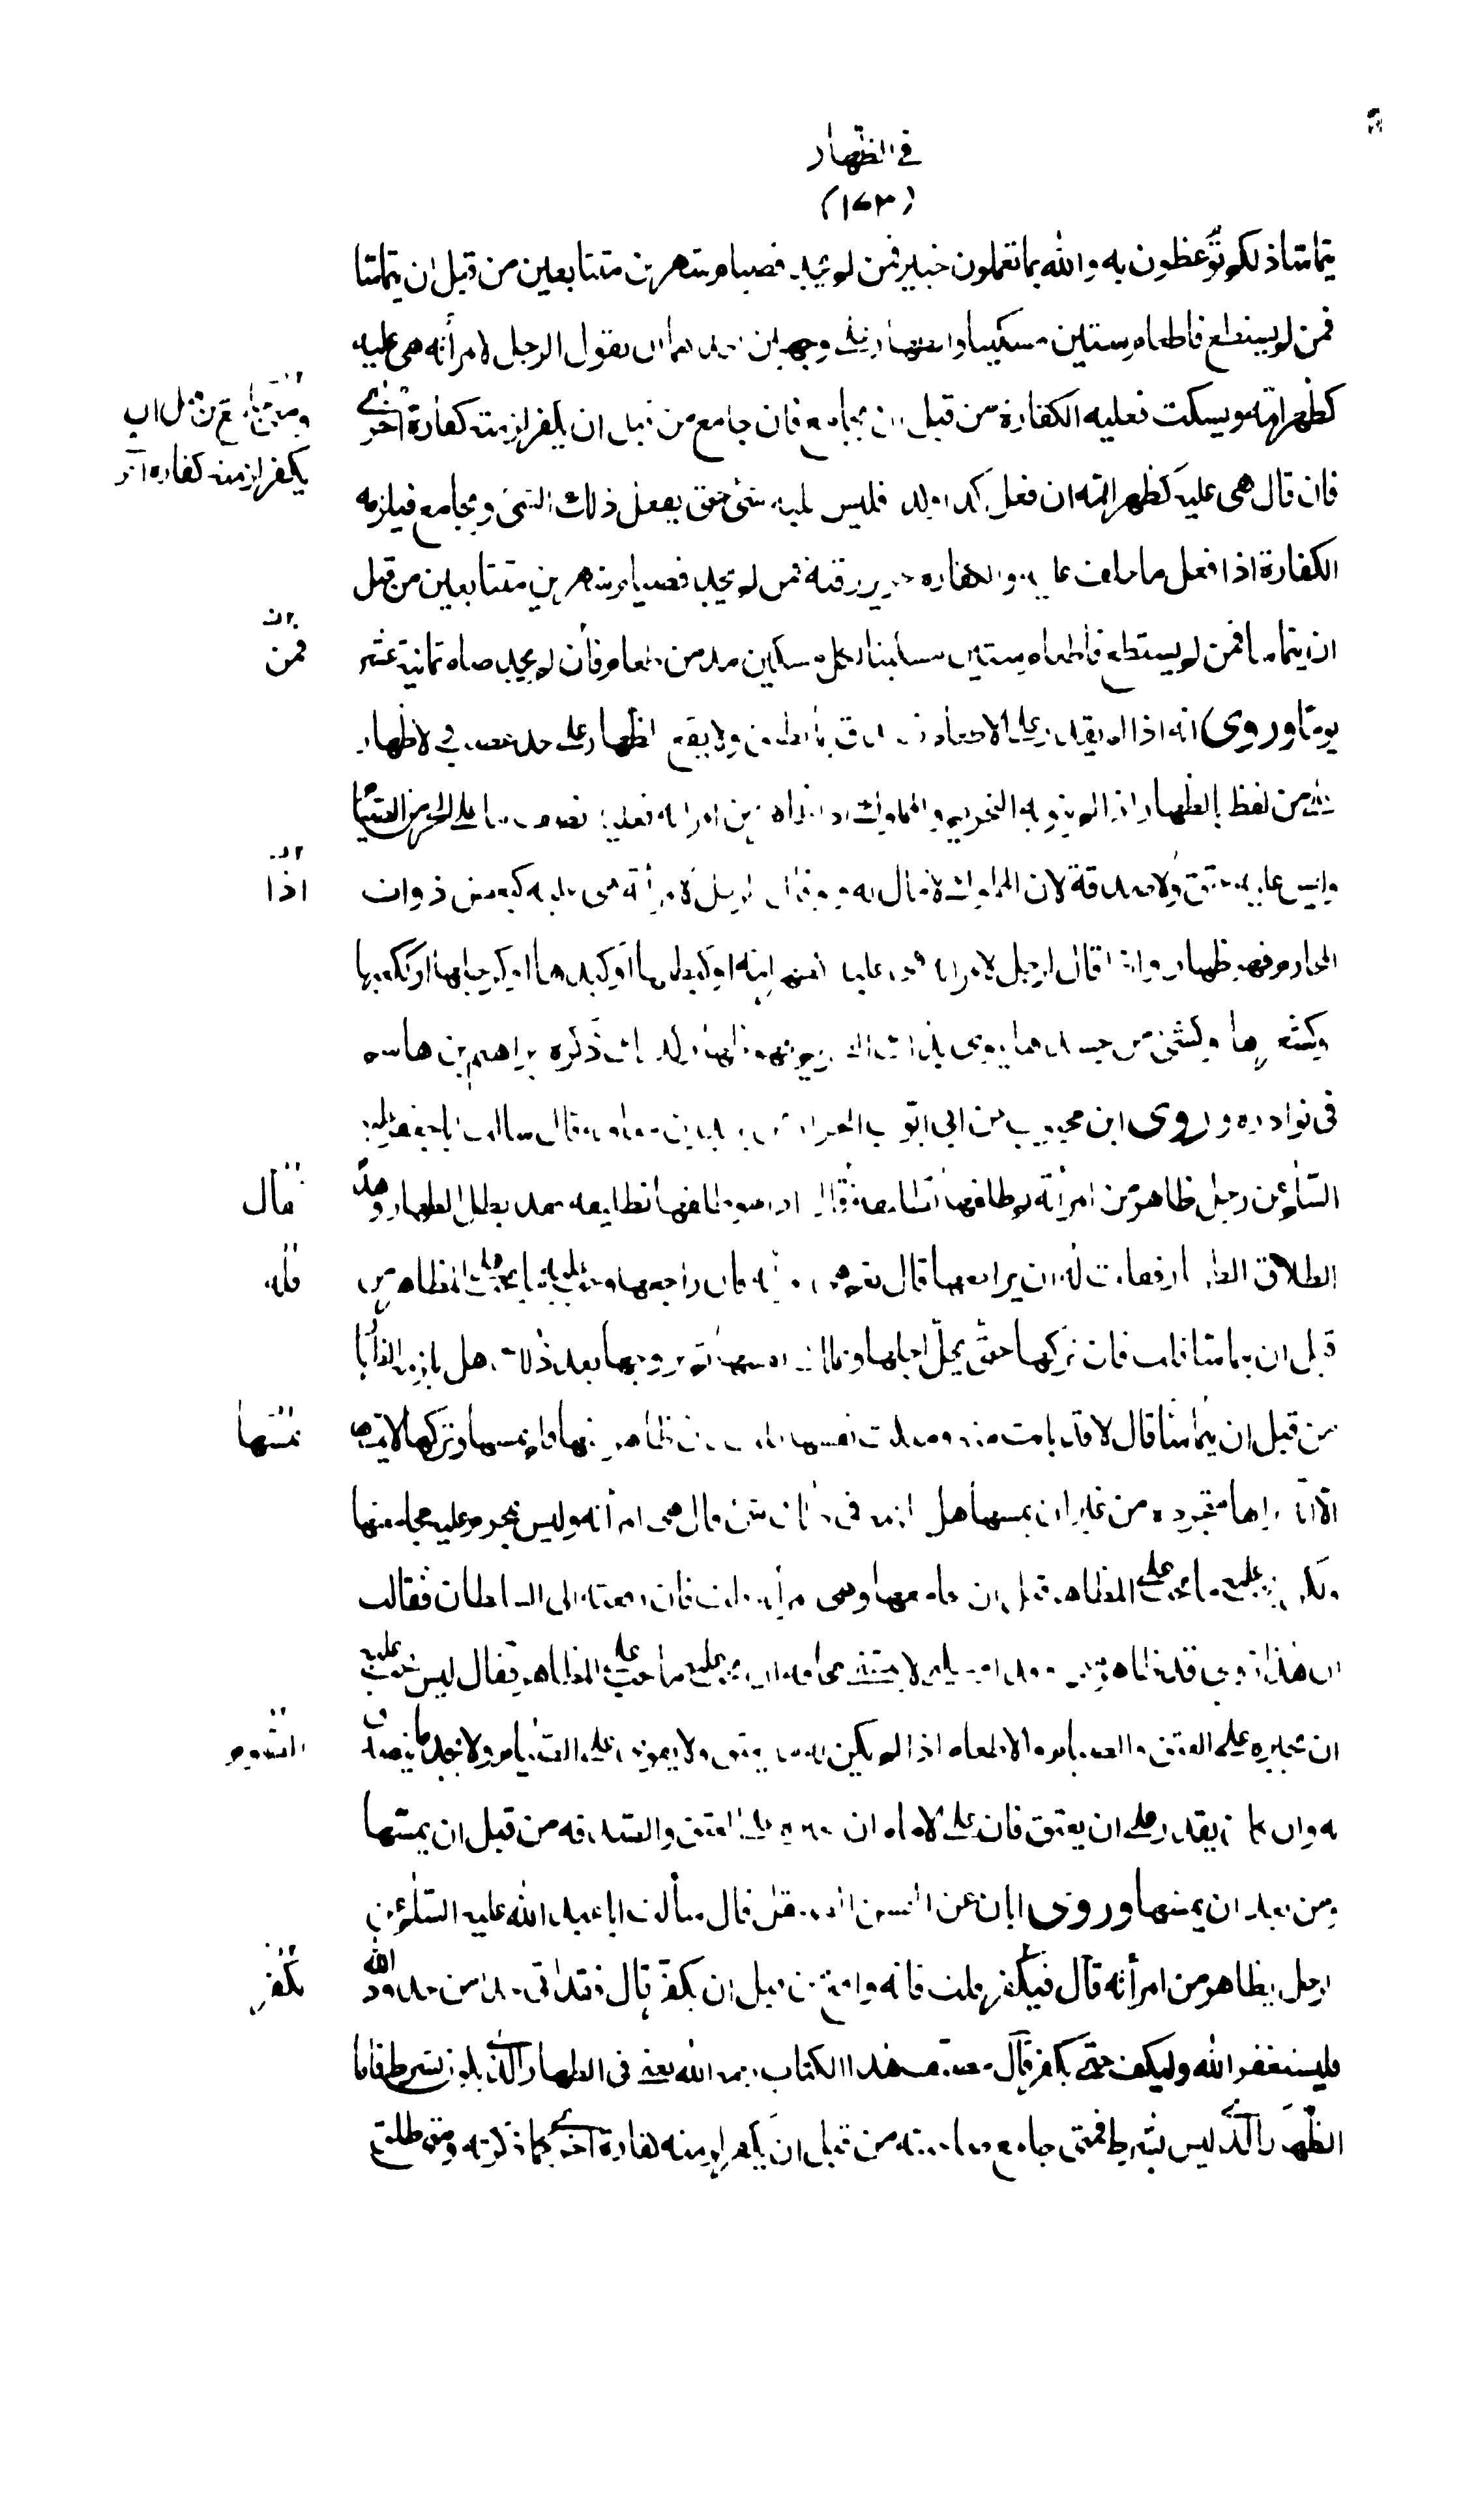 في الظهار
(١٦٣)
يتماسّا ذلكم توعظون به والله بما تعملون خبير فمن لم يجد فصيام شهرين متتابعين من قبل ان يتماسا
فمن لم يستطع فاطعام ستين مسكينا والظهار على وجهين ان يقول الرجل لامرأته هي عليه
كظهر امّه ويسكت فعليه الكفارة من قبل ان يجامع فان جامع من قبل ان يكفر لزمته كفارة اخرى
يكفر لزمته كفارة
فان قال هي عليه كظهر امّه ان فعل كذا فليس عليه شيء حتى يفعل ذلك الشيء ويجامع فيلزمه
الكفارة اذا فعل ما حلف عليه والكفارة تحرير رقبة فمن لم يجد فصيام شهرين متتابعين من قبل
ان يتماسا فمن لم يستطع فاطعام ستين مسكينا لكل مسكين مد من طعام فان لم يجد صام ثمانية عشر
فمن
يوما وروي انه اذا لم يقدر على الاطعام ولا يقع الظهار على حد غضب
من لفظ بالظهار اذا لم ينو به التحريم والمملوك اذا ظاهر من امرأته فعليه نصف ما على الحر من الصيام
وليس عليه عتق ولا صدقة لان المملوك لا مال له الرجل لامرأته هي عليه كبعض ذوات
اذا
المحارم فهو ظهار واذا قال الرجل لامرأته هي عليه كظهر امّه او كبطنها او كيدها او كرجلها او ككعبها
او كشعرها او كشيء من جسدها ينوي بذلك التحريم فهو ظهار كذلك ذكره ابراهيم بن هاشم
في نوادره وروى ابن محبوب عن ابي ايّوب الخزاز عن يزيد بن معاوية قال سألت ابا جعفر عليه
السلام عن رجل ظاهر من امرأته ثم طلقها تطليقة فقال اذا هو طلقها تطليقة فقد بطل الظهار وهدم
فقال
الطلاق الظهار فقلت له ان يراجعها قال نعم هي امرأته فان راجعها وجب عليه ما يجب على المظاهر من
قلت
قبل ان يتماسّا قلت فان تركها حتى يحلّ اجلها وتملك نفسها ثم تزوجها بعد ذلك هل يلزمه الظهار
من قبل ان يتماسّا قال لا قد بانت منه وملكت نفسها قلت فان ظاهر منها فلم يمسها وتركها لا يمسها
يمسّها
الّا انّه يراها متجردة من غير ان يمسها هل يلزمه في ذلك شيء قال هي امرأته وليس بمحرم عليه مجامعتها
ولكن يجب عليه ما يجب على المظاهر قبل ان يجامعها وهي امرأته قلت فان رفعته الى السلطان فقالت
ان هذا زوجي قد ظاهر مني وقد امسكني لا يمسني مخافة ان يجب عليه ما يجب على المظاهر فقال ليس يجب عليه
ان يجبره على العتق والصيام والاطعام اذا لم يكن له ما يعتق ولا يقوى على الصيام ولا يجد ما يتصدق
الصوم
به وان كان يقدر على ان يعتق فان على الامام ان يجبره على العتق والصدقة من قبل ان يمسّها
ومن بعد ان يمسّها وروى ابان عن الحسن الصيقل قال سألت ابا عبد الله عليه السلام عن
الرجل يظاهر من امرأته قال فيكفر قلت فانه واقع من قبل ان يكفّر قال فقد اتى حدا من حدود الله
يكفر
فليستغفر الله وليكف حتى يكفر قال مصنف هذا الكتاب رحمه الله يعني في الظهار الذي يكون بشرط فاما
الظهار الذي ليس بشرط فمتى جامع صاحبه من قبل ان يكفر لزمته كفارة اخرى كما ذكرته ومتى طلق